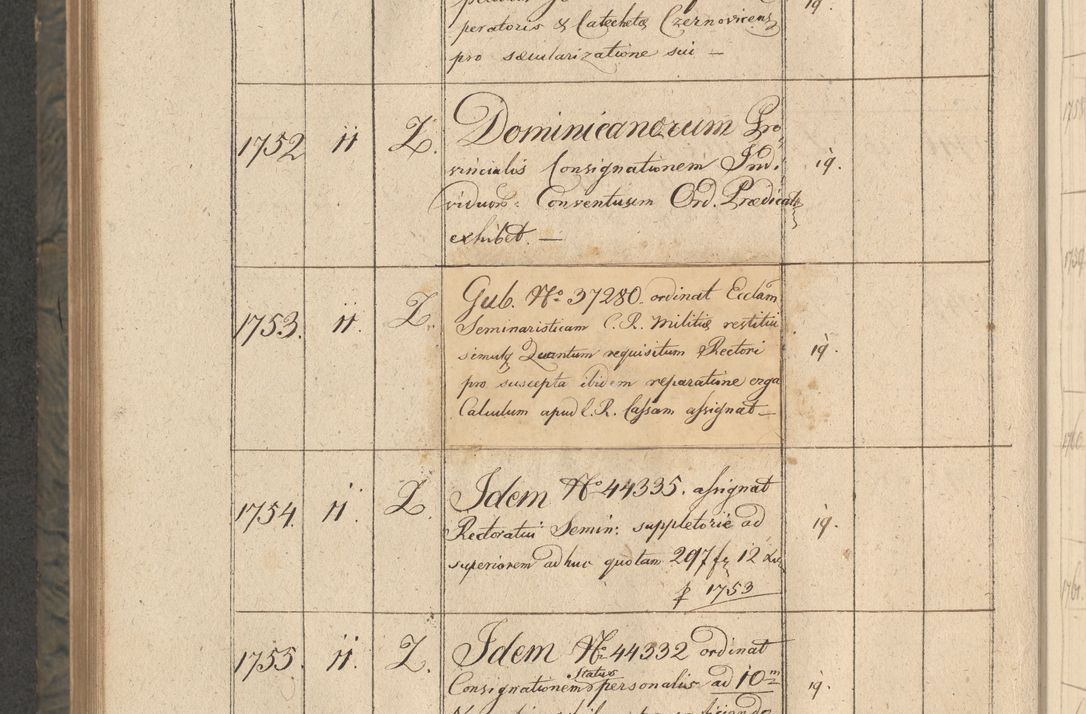 peratoris & Catechetæ Czernovicens
pro sæcularizatione sui — 19.
1752 11 Z. Dominicanorum Pro
vincialis Consignationem Indi
viduor: Conventuum Ord. Prædicat 19.
exhibet. —
1753. 11. Z. Gub. No. 37280. ordinat Ecclam
Seminaristicam C. R. Militiæ restitui
simulq Quantum requisitum Rectori 19.
pro suscepta ibidem reparatione erga
Calculum apud C. R. Cassam assignat —
1754. 11. Z. Idem No 44335. assignat
Rectoratui Semin: suppletorie ad 19.
superiorem adhuc quotam 297 fr 12 xr
p 1753
1755. 11. Z. Idem No 44332 ordinat
Consignationem status personalis ad 10m 19.